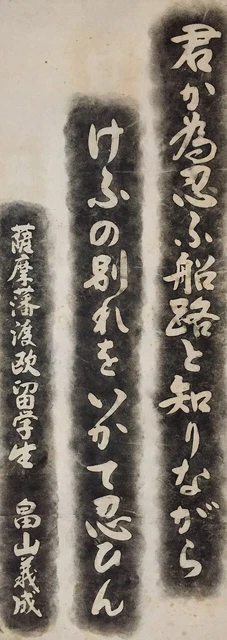 君か為忍ふ船路と知りながら
けふの別れをいかて忍ひん
薩摩藩渡欧留学生 畠山義成